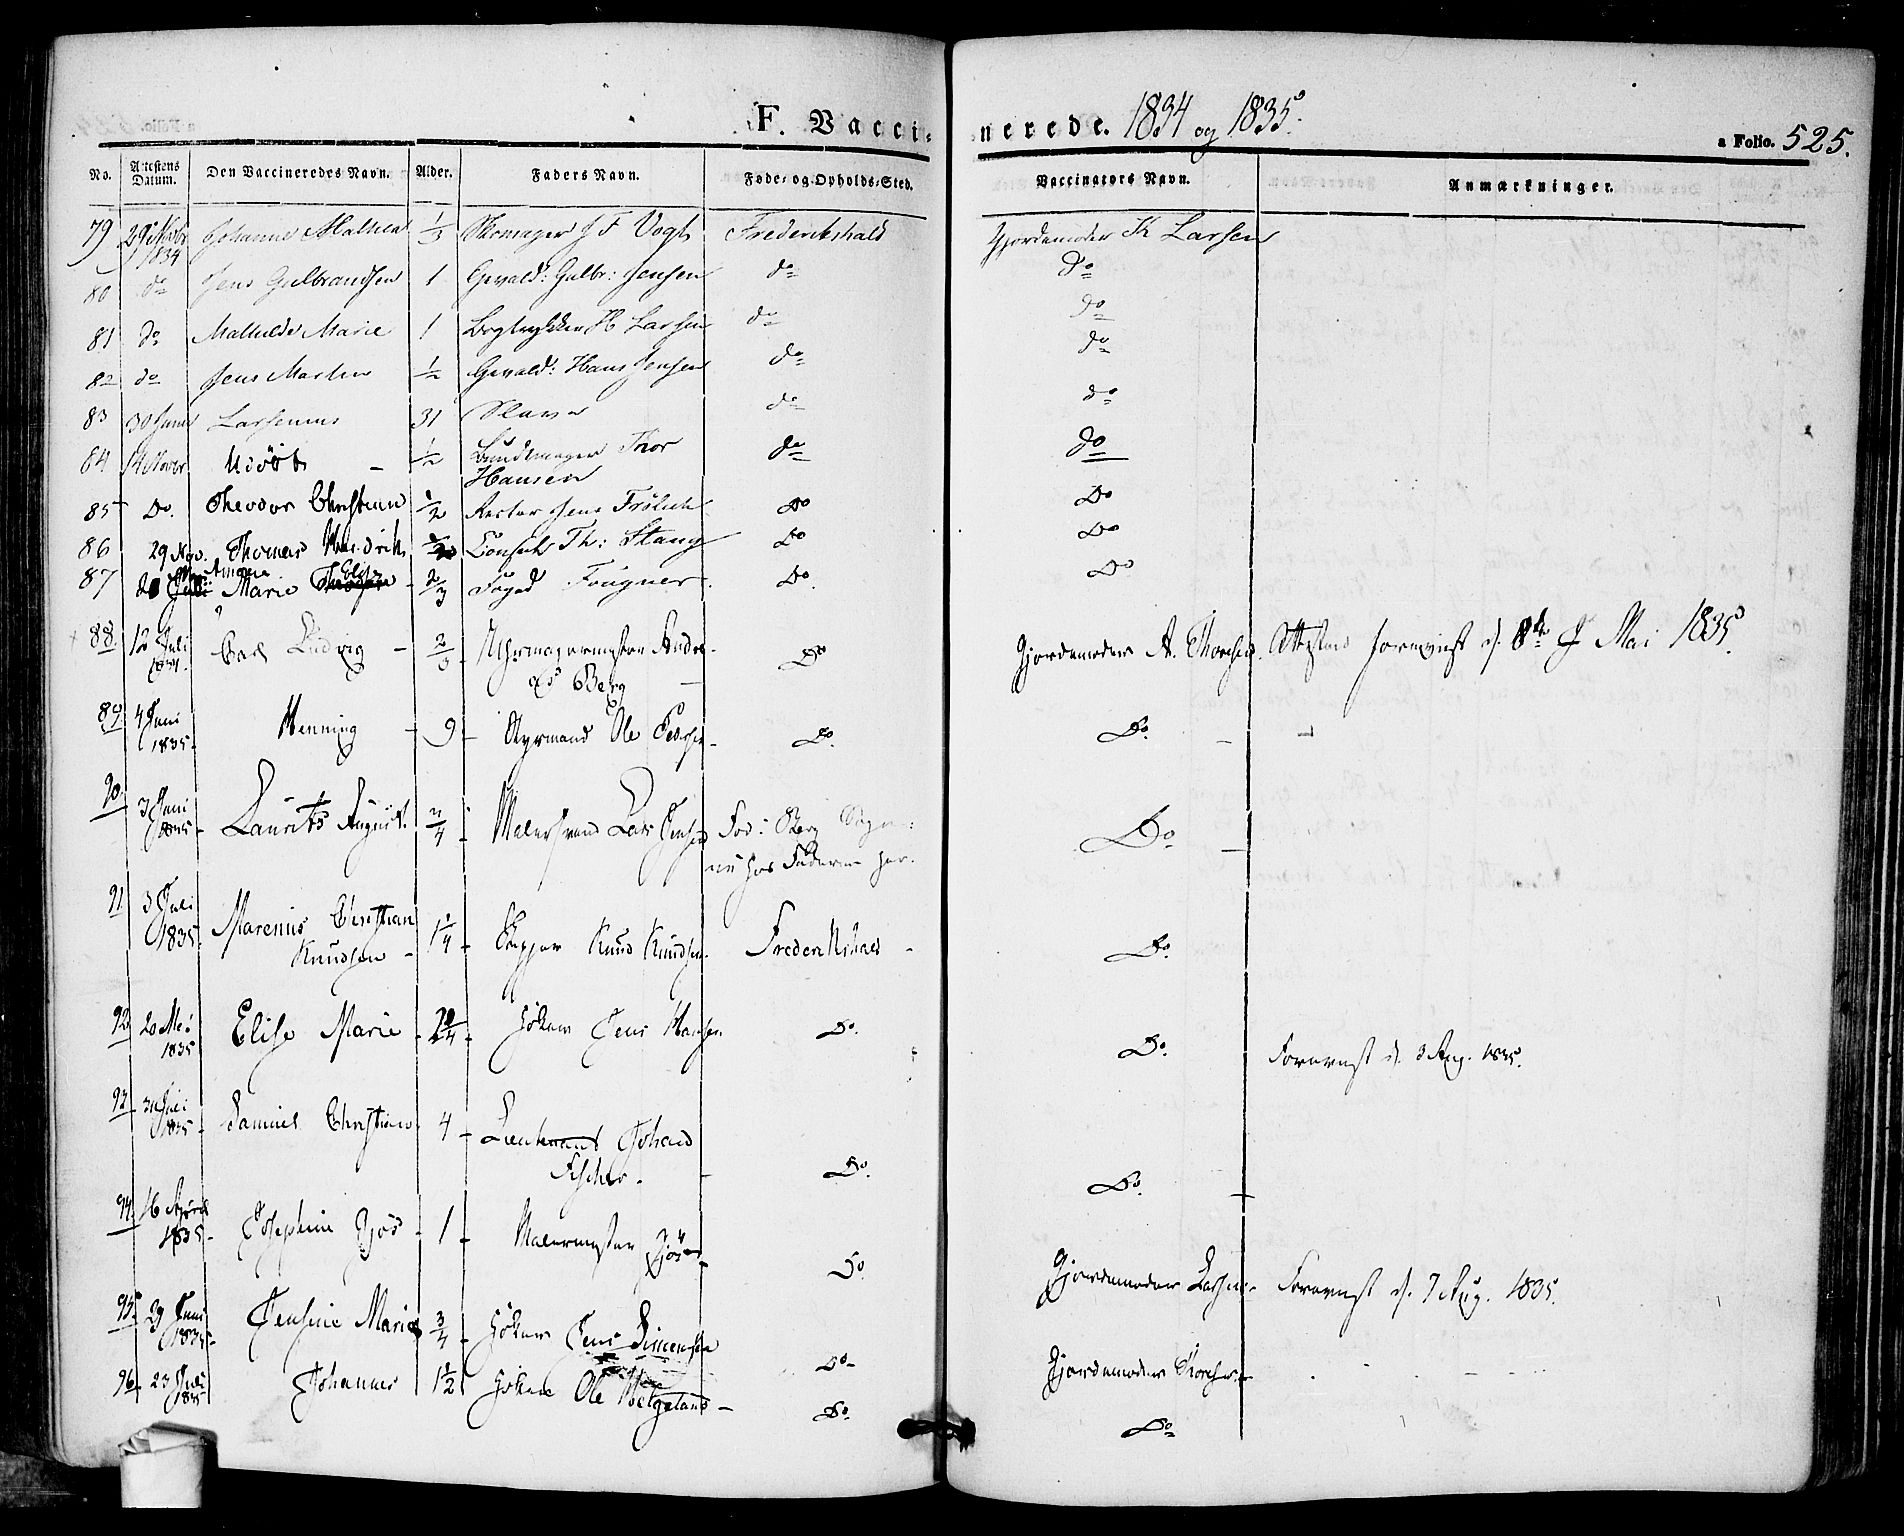 F. Vacci-
nerede. 1834 og 1835.
a Folio. 525.
No. Attestens Datum. Den Vaccineredes Navn. Alder. Faders Navn. Føde- og Opholds-Sted. Vaccinators Navn. Anmærkninger.
79 29 Novbr 1834 Johanne 1/3 Skomager J F Vogt Frederikshald Gjordemoder K Larsen
80 do Jens Gulbrandsen 1 Gevald: Gulbr: Jensen do do
81 do Mathilde Marie 1 H Larsen do do
82 do Jens Martin 1/2 Gevald: Hans Jensen do do
83 30 Larsenius 31 Slave do do
84 14 Novbr 1/2 Bundtmager Thor
Hansen do do
85 Do. Theodor Christian 1/2 Rector Jens Frölich Do Do
86 29 Nov. Thomas Hendrik Consul Th: Stang Do Do
87 Marie 2/3 Foged Fougner. Do. Do
88. 12 Juli 1834. Carl Ludvig 2/3 Uhrmagermester Andre-
as Berg Do Gjordemoder A. Thoresen. Attesten foreviist d. 8de Mai 1835.
89 4 Juni 1835 Henning 9 Styrmand Ole Do. Do.
90. 3 Juni 1835 Laurits August. 3/4 Malersvend Lars Jensen Fød: Berg Sogn:
nu hos Faderen her. Do
91 3 Juli 1835. Marenius Christian
Knudsen 1 1/4 Skipper Knud Knudsen. Frederikshald Do
92 20 Mai 1835 Elise Marie Høker Jens Hansen Do. Do. Foreviist d. 3 Aug. 1835.
93 Juli 1835 Samuel Christian 4 Lieutenant Johan
Fischer. Do. Do.
94. 16 April 1835 Josephine Gjøs 1 Malermester Gjøs Do Gjordemoder Larsen Foreviist d. 7 Aug. 1835.
95. 29 Juni 1835 Jensine Marie 3/4 Høker Jens Simensen Do Gjordemoder Thoresen
96. 23 Juli 1835 Johannes 1 1/2 Høker Ole Helgeland Do. Do